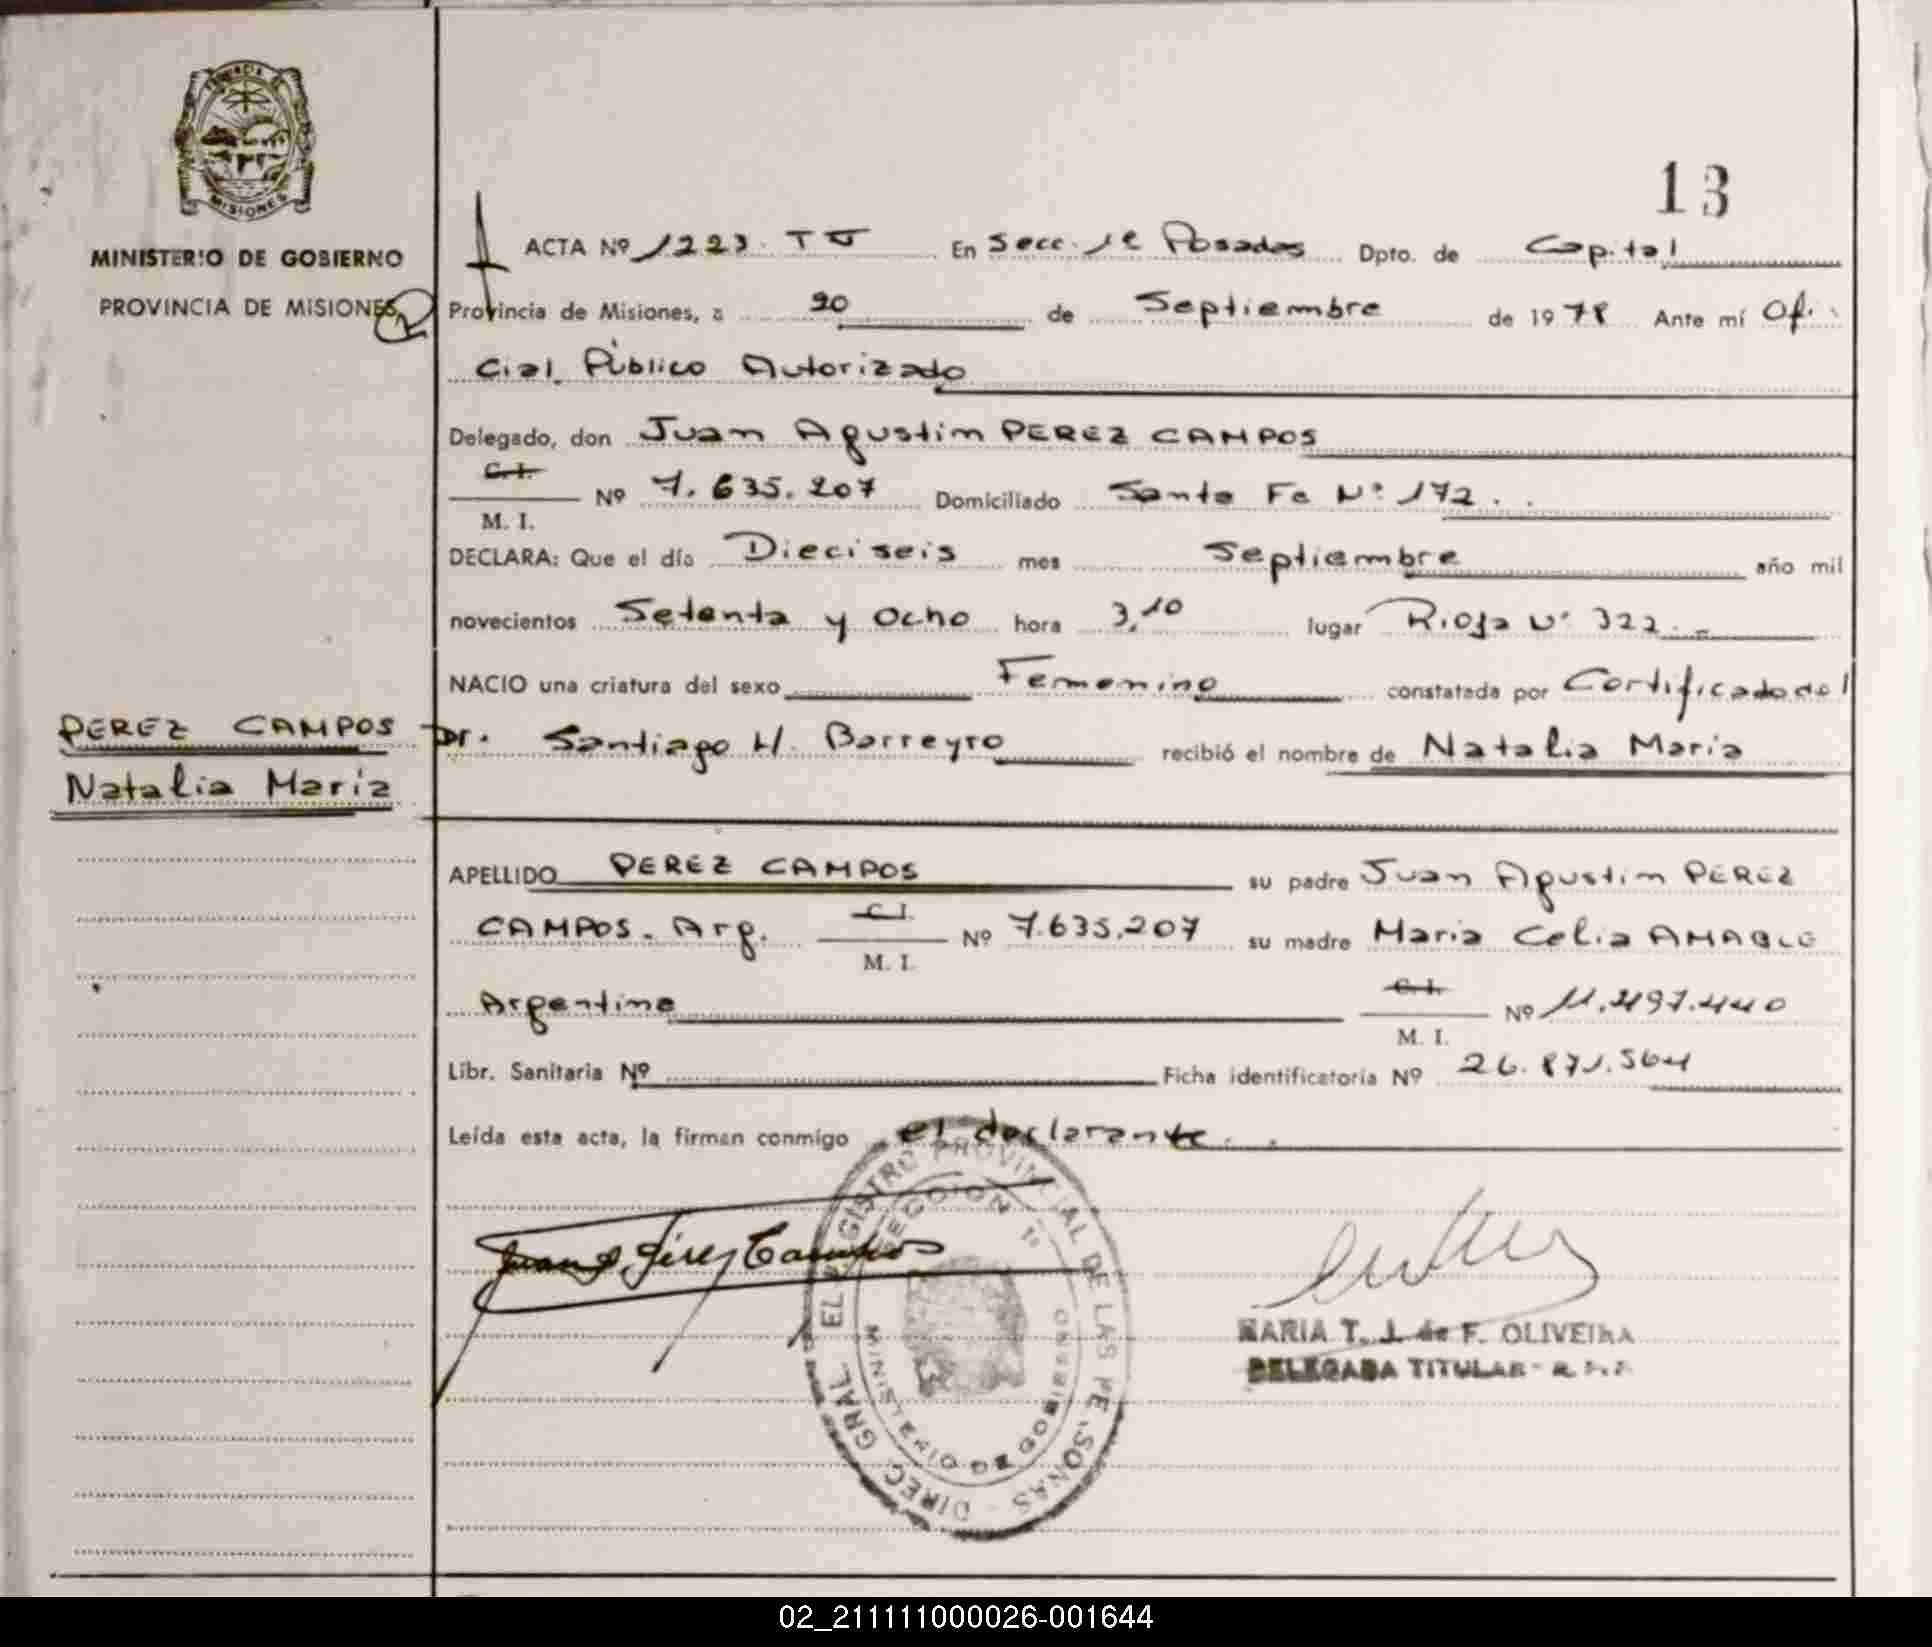 PROVINCIA DE
MISIONES
MINISTERIO DE GOBIERNO
PROVINCIA DE MISIONES
13
ACTA Nº 1223. TV En Secc. 1ª Posadas Dpto. de Capital
Provincia de Misiones, a 20 de Septiembre de 1978 Ante mí Ofi-
cial Público Autorizado
Delegado, don Juan Agustin PEREZ CAMPOS
C. I.
M. I. Nº 7.635.207 Domiciliado Santa Fe Nº 172.
DECLARA: Que el día Dieciseis mes Septiembre año mil
novecientos Setenta y Ocho hora 3,10 lugar Rioja Nº 322.-
NACIO una criatura del sexo Femenino constatada por Certificado del
Dr. Santiago H. Barreyro recibió el nombre de Natalia María
PEREZ CAMPOS
Natalia María
APELLIDO PEREZ CAMPOS su padre Juan Agustin PEREZ
CAMPOS. Arg. C. I.
M. I. Nº 7.635.207 su madre Maria Celia AMABLE
Argentina C. I.
M. I. Nº 11.497.440
Libr. Sanitaria Nº Ficha identificatoria Nº 26.871.564
Leída esta acta, la firman conmigo el declarante.
Juan A. Pérez Campos
DIREC. GRAL. EL REGISTRO PROVINCIAL DE LAS PERSONAS
SECCION 1a
MINISTERIO DE GOBIERNO
MARIA T. J. de F. OLIVEIRA
DELEGADA TITULAR - R. P. P.
02_211111000026-001644